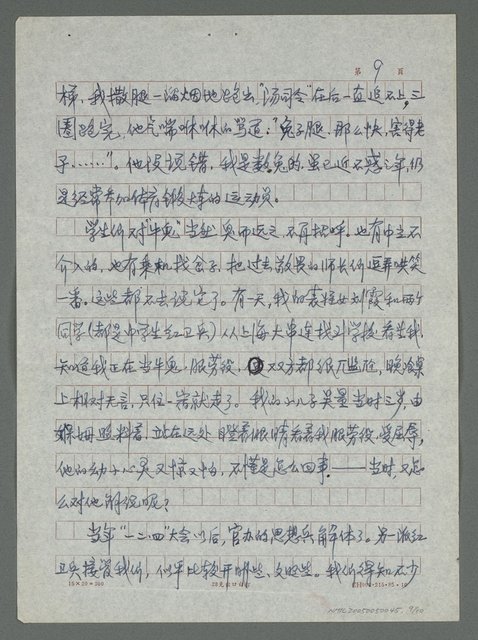 第 9 页
梯，我撒腿一溜烟地跑出，“汤司令”在后一直追不上，三
圈跑完，他气喘咻咻的骂道：“兔子腿，那么快，害得老
子……”。他没说错，我是数兔的，虽已近不惑之年，仍
是经常参加体育锻炼的运动员。
学生们对“牛鬼”当然臭而远之，不再招呼。也有中立不
介入的，也有乘机找岔子，把过去敬畏的师长们逗弄哄笑
一番。这些都不去说它了。有一天，我的表姪女刘霞和两个
同学（都是中学生红卫兵）从上海大串连找到学校看望我，
知道我正在当牛鬼，服劳役，双方都很尴尬，晚滄桌
上相对无言，只住一宿就走了。我的小儿子吴星当时三岁，由
保姆照料着，站在远处瞪着眼睛看着我服劳役，受屈辱，
他的幼子心灵又惊又怕，不懂是怎么回事。——当时，又怎
么对他解说呢？
当年“一二四”大会以后，官办的思想兵解体了。另一派红
卫兵接管我们，似乎比较开明些，文明些。我们得知不少
15×20=300
NMTL20050050045. 9/10